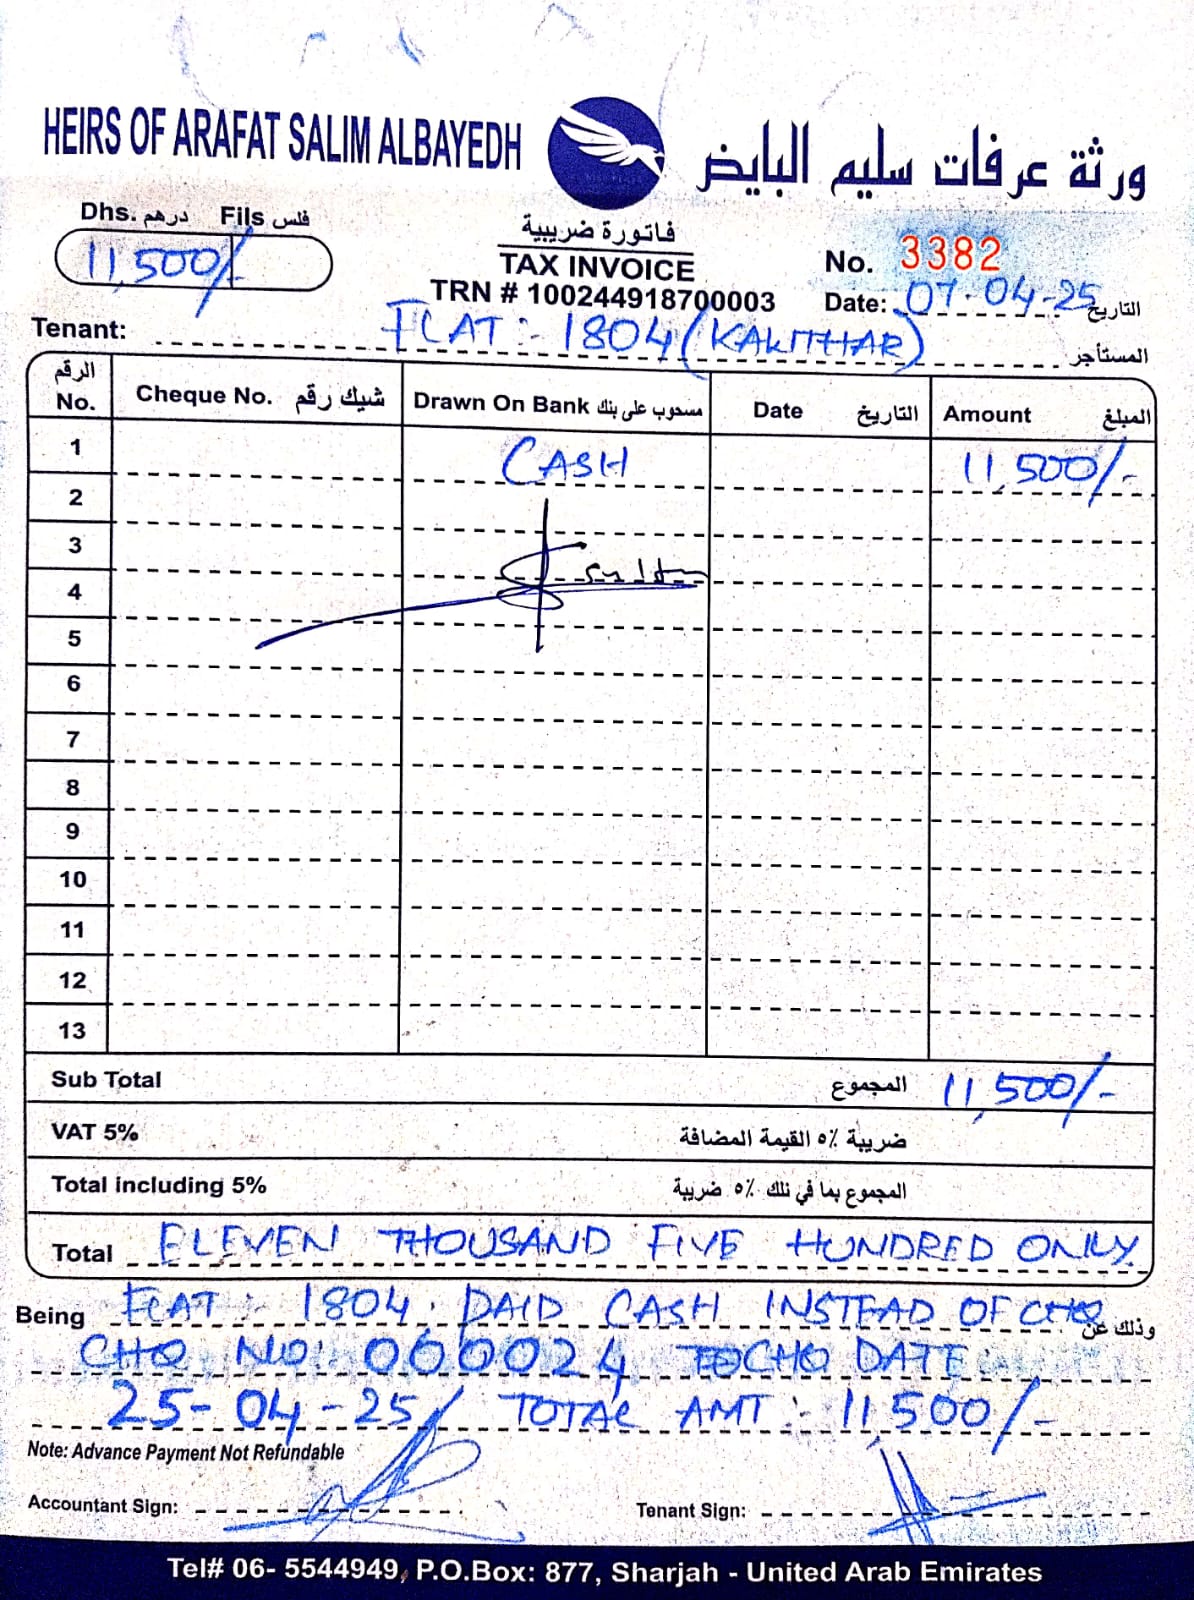 HEIRS OF ARAFAT SALIM ALBAYEDH
ورثة عرفات سليم البايض
Dhs. درهم Fils فلس
11,500/-
فاتورة ضريبية
TAX INVOICE
TRN # 100244918700003
No. 3382
Date: 07-04-25 التاريخ
Tenant: FLAT:- 1804 (KAWTHAR) المستأجر
الرقم No. Cheque No. شيك رقم Drawn On Bank مسحوب على بنك Date التاريخ Amount المبلغ
1 CASH 11,500/-
2
3
4
5
6
7
8
9
10
11
12
13
Sub Total المجموع 11,500/-
VAT 5% ضريبة ٥٪ القيمة المضافة
Total including 5% المجموع بما في تلك ٥٪ ضريبة
Total ELEVEN THOUSAND FIVE HUNDRED ONLY.
Being FLAT:- 1804. PAID CASH INSTEAD OF CHQ وذلك عن
CHQ NO: 000024 CHQ DATE:
25-04-25/ TOTAL AMT:- 11,500/-
Note: Advance Payment Not Refundable
Accountant Sign: Tenant Sign:
Tel# 06- 5544949, P.O.Box: 877, Sharjah - United Arab Emirates